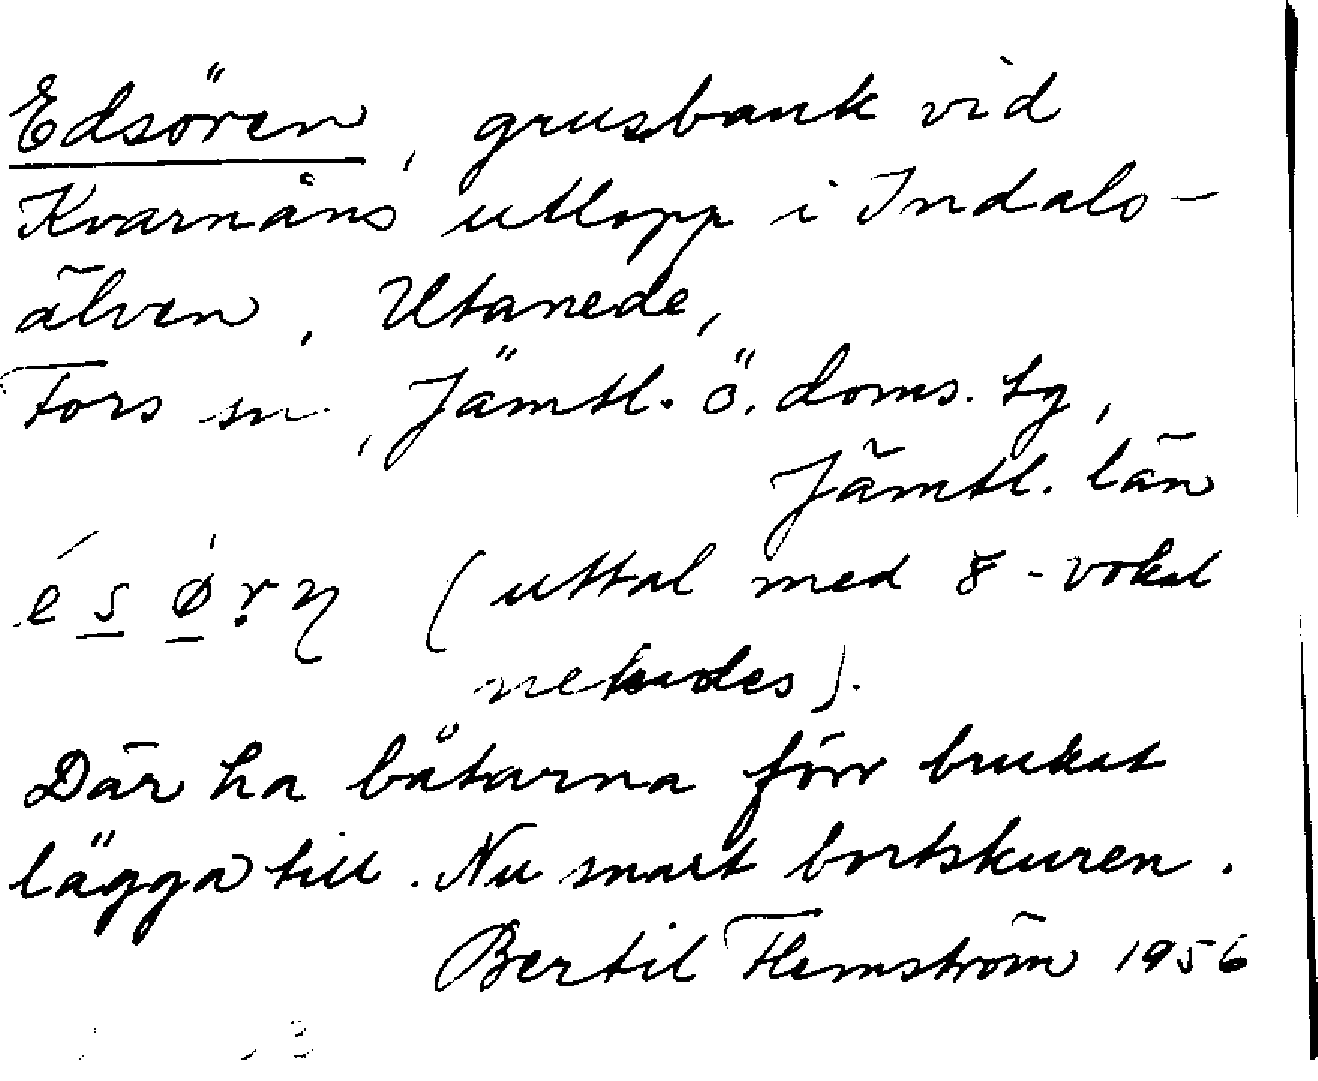 Edsören, grusbank vid
Kvarnåns utlopp i Indals-
älven, Utanede,
Fors sn, Jämtl. ö. doms. tg,
Jämtl. län
(uttal med 8-vokal
nekades).
Där ha båtarna förr brukat
lägga till. Nu snart bortskuren.
Bertil Flemström 1956